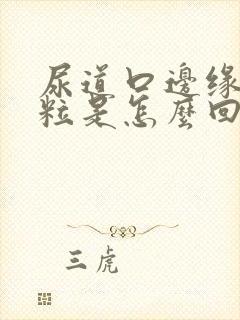 尿道口邊缘
粒是怎麼回
三虎